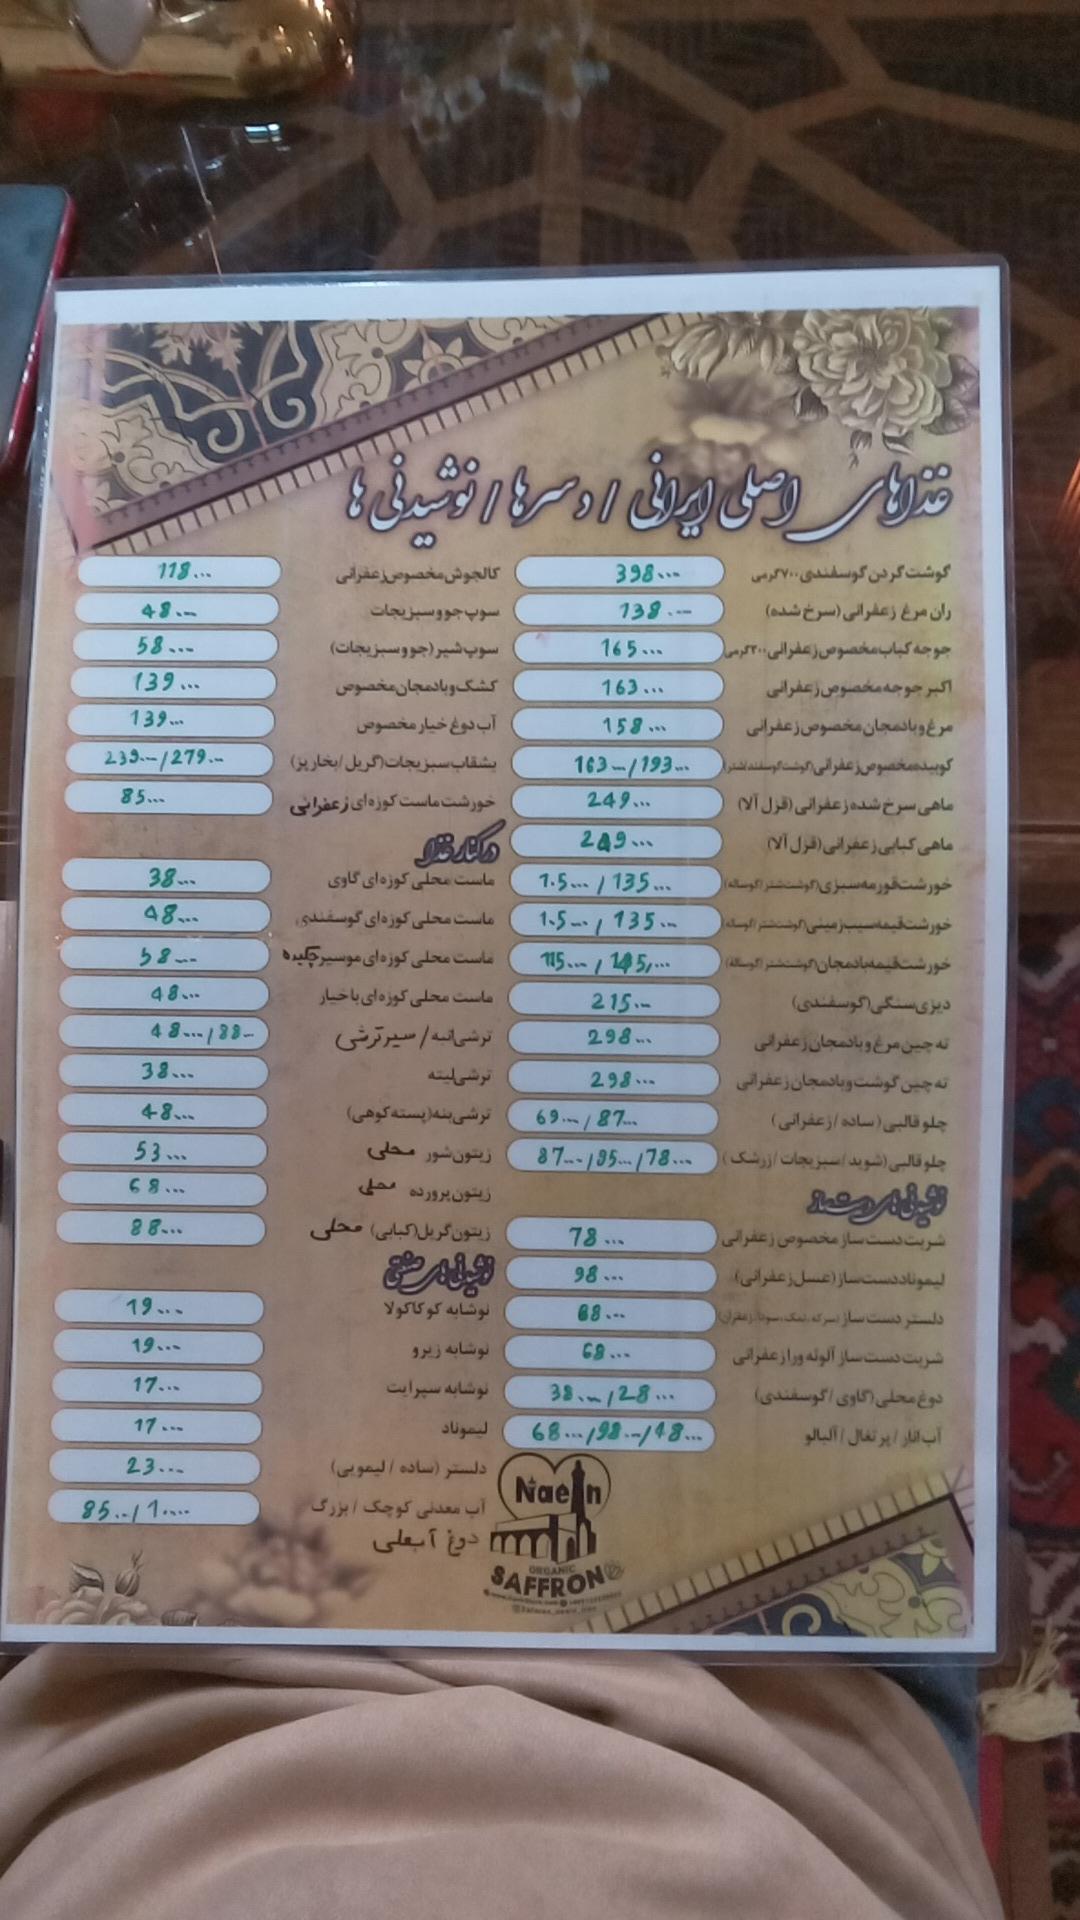 غذاهای اصلی ایرانی / دسرها / نوشیدنی ها
گوشت گردن گوسفندی ۷۰۰گرمی 398000
ران مرغ زعفرانی (سرخ شده) 138000
جوجه کباب مخصوص زعفرانی ۳۰۰گرمی 165000
اکبر جوجه مخصوص زعفرانی 163000
مرغ و بادمجان مخصوص زعفرانی 158000
کوبیده مخصوص زعفرانی (گوشت گوسفند/شتر) 163000/193000
ماهی سرخ شده زعفرانی (قزل آلا) 249000
ماهی کبابی زعفرانی (قزل آلا) 249000
خورشت قورمه سبزی (گوشت شتر/گوساله) 105000 / 135000
خورشت قیمه سیب زمینی (گوشت شتر/گوساله) 105000 / 135000
خورشت قیمه بادمجان (گوشت شتر/گوساله) 115000 / 145,000
دیزی سنگی (گوسفندی) 215000
ته چین مرغ و بادمجان زعفرانی 298000
ته چین گوشت و بادمجان زعفرانی 298000
چلو قالبی (ساده / زعفرانی) 69000 / 87000
چلو قالبی (شوید / سبزیجات / زرشک) 87000/95000/78000
نوشیدنی های دست ساز
شربت دست ساز مخصوص زعفرانی 78000
لیموناد دست ساز (عسل زعفرانی) 98000
دلستر دست ساز (سرکه، نمک، سودا، زعفران) 88000
شربت دست ساز آلوئه ورا زعفرانی 68000
دوغ محلی (گاوی / گوسفندی) 38000/28000
آب انار / پرتغال / آلبالو 68000/98000/48000
کالجوش مخصوص زعفرانی 118000
سوپ جو و سبزیجات 48000
سوپ شیر (جو و سبزیجات) 58000
کشک و بادمجان مخصوص 139000
آب دوغ خیار مخصوص 139000
بشقاب سبزیجات (گریل / بخارپز) 239000/279000
خورشت ماست کوزه ای زعفرانی 85000
در کنار غذا
ماست محلی کوزه ای گاوی 38000
ماست محلی کوزه ای گوسفندی 48000
ماست محلی کوزه ای موسیر چکیده 58000
ماست محلی کوزه ای با خیار 48000
ترشی انبه / سیر ترشی 48000/88000
ترشی لیته 38000
ترشی بنه (پسته کوهی) 48000
زیتون شور محلی 53000
زیتون پرورده محلی 68000
زیتون گریل (کبابی) محلی 88000
نوشیدنی های صنعتی
نوشابه کوکاکولا 19000
نوشابه زیرو 19000
نوشابه سپرایت 17000
لیموناد 17000
دلستر (ساده / لیمویی) 23000
آب معدنی کوچک / بزرگ 8500/10000
دوغ آبعلی
Naein
ORGANIC
SAFFRON